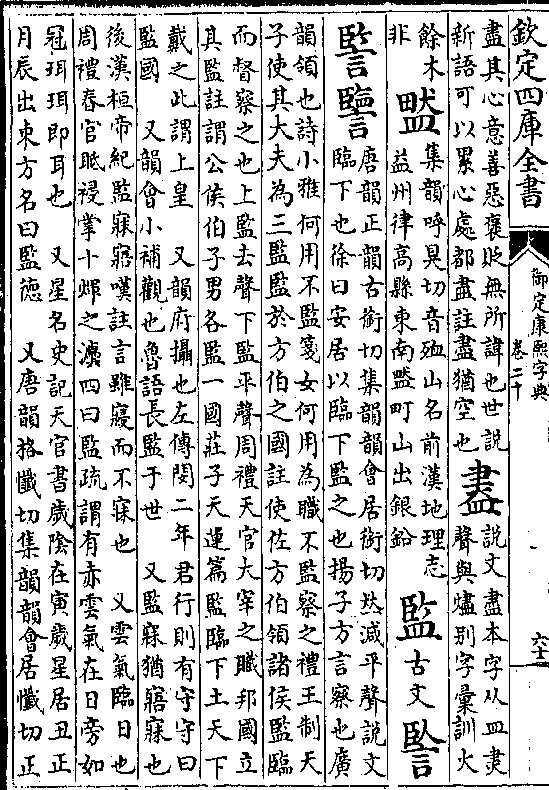 欽定四庫全書
御定康熙字典
卷二十
六十一
盡其心意善惡褒貶無所諱也世說
新語可以累心處都盡註盡猶空也
𥁞
說文盡本字从皿㶳
聲與燼別字彙訓火
餘木
非
𥂕
集韻呼㫤切音𣧑山名前漢地理志
益州律高縣東南𥂕町山出銀鉛
監
古文
𧨀
唐韻正韻古銜切集韻韻會居銜切𠀤減平聲說文
臨下也徐曰安居以臨下監之也揚子方言察也廣
韻領也詩小雅何用不監箋女何用為職不監察之禮王制天
子使其大夫為三監監於方伯之國註使佐方伯領諸侯監臨
而督察之也上監去聲下監平聲周禮天官大宰之職邦國立
其監註謂公侯伯子男各監一國莊子天運篇監臨下土天下
戴之此謂上皇 又韻府攝也左傳閔二年君行則有守守曰
監國 又韻會小補觀也魯語長監于世 又監寐猶寤寐也
後漢桓帝紀監寐寤嘆註言雖寢而不寐也 又雲氣臨日也
周禮春官眡祲掌十煇之灋四曰監疏謂有赤雲氣在日旁如
冠珥珥即耳也 又星名史記天官書歲陰在寅歲星居丑正
月辰出東方名曰監德 又唐韻格懺切集韻韻會居懺切正